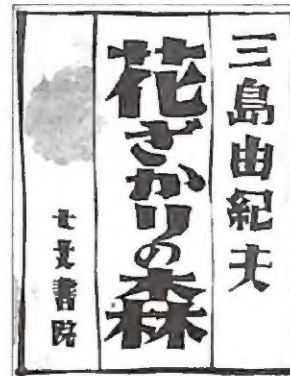 三島由紀夫
花ざかりの森
七丈書院